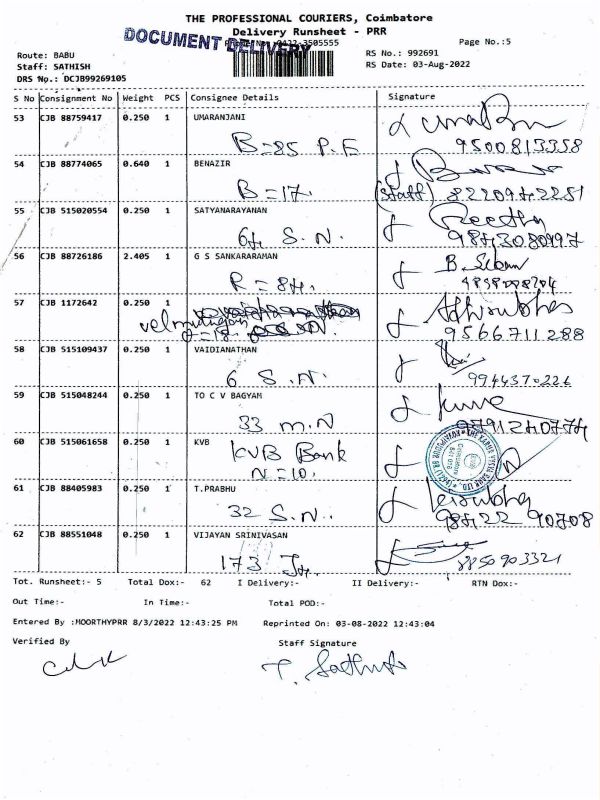 THE PROFESSIONAL COURIERS, Coimbatore
Delivery Runsheet - PRR
DOCUMENT DELIVERY
Page No.:5
Route: BABU
RS No.: 992691
Staff: SATHISH
RS Date: 03-Aug-2022
DRS No.: DCJB99269105
S No Consignment No Weight PCS Consignee Details Signature
53 CJB 88759417 0.250 1 UMARANJANI
B=85 P.E 9500813358
54 CJB 88774065 0.640 1 BENAZIR
B=17. (staff) 8220942251
55 CJB 515020554 0.250 1 SATYANARAYANAN
64 S.N. 9843080997
56 CJB 88726186 2.405 1 G S SANKARARAMAN
R=84.
57 CJB 1172642 0.250 1
velmurugan
9566711288
58 CJB 515109437 0.250 1 VAIDIANATHAN
6 S.N. 9944370226
59 CJB 515048244 0.250 1 TO C V BAGYAM
33 M.N 9791240774
60 CJB 515061658 0.250 1 KVB
KVB Bank
N=10.
61 CJB 88405983 0.250 1 T.PRABHU
32 S.N. 98422 90708
62 CJB 88551048 0.250 1 VIJAYAN SRINIVASAN
8850903321
Tot. Runsheet:- 5 Total Dox:- 62 I Delivery:- II Delivery:- RTN Dox:-
Out Time:- In Time:- Total POD:-
Entered By :MOORTHYPRR 8/3/2022 12:43:25 PM Reprinted On: 03-08-2022 12:43:04
Verified By Staff Signature